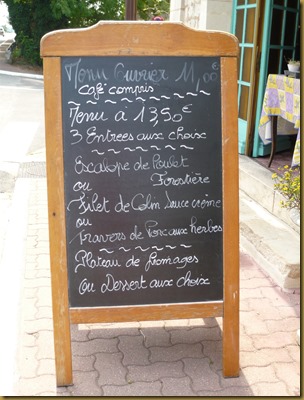 Menu Ouvrier 11,00€
Café compris
Menu à 13,50€
3 Entrées aux choix
Escalope de Poulet
ou Forestière
Filet de Colin sauce crème
ou
Travers de Porc aux herbes
Plateau de fromages
ou Dessert aux choix